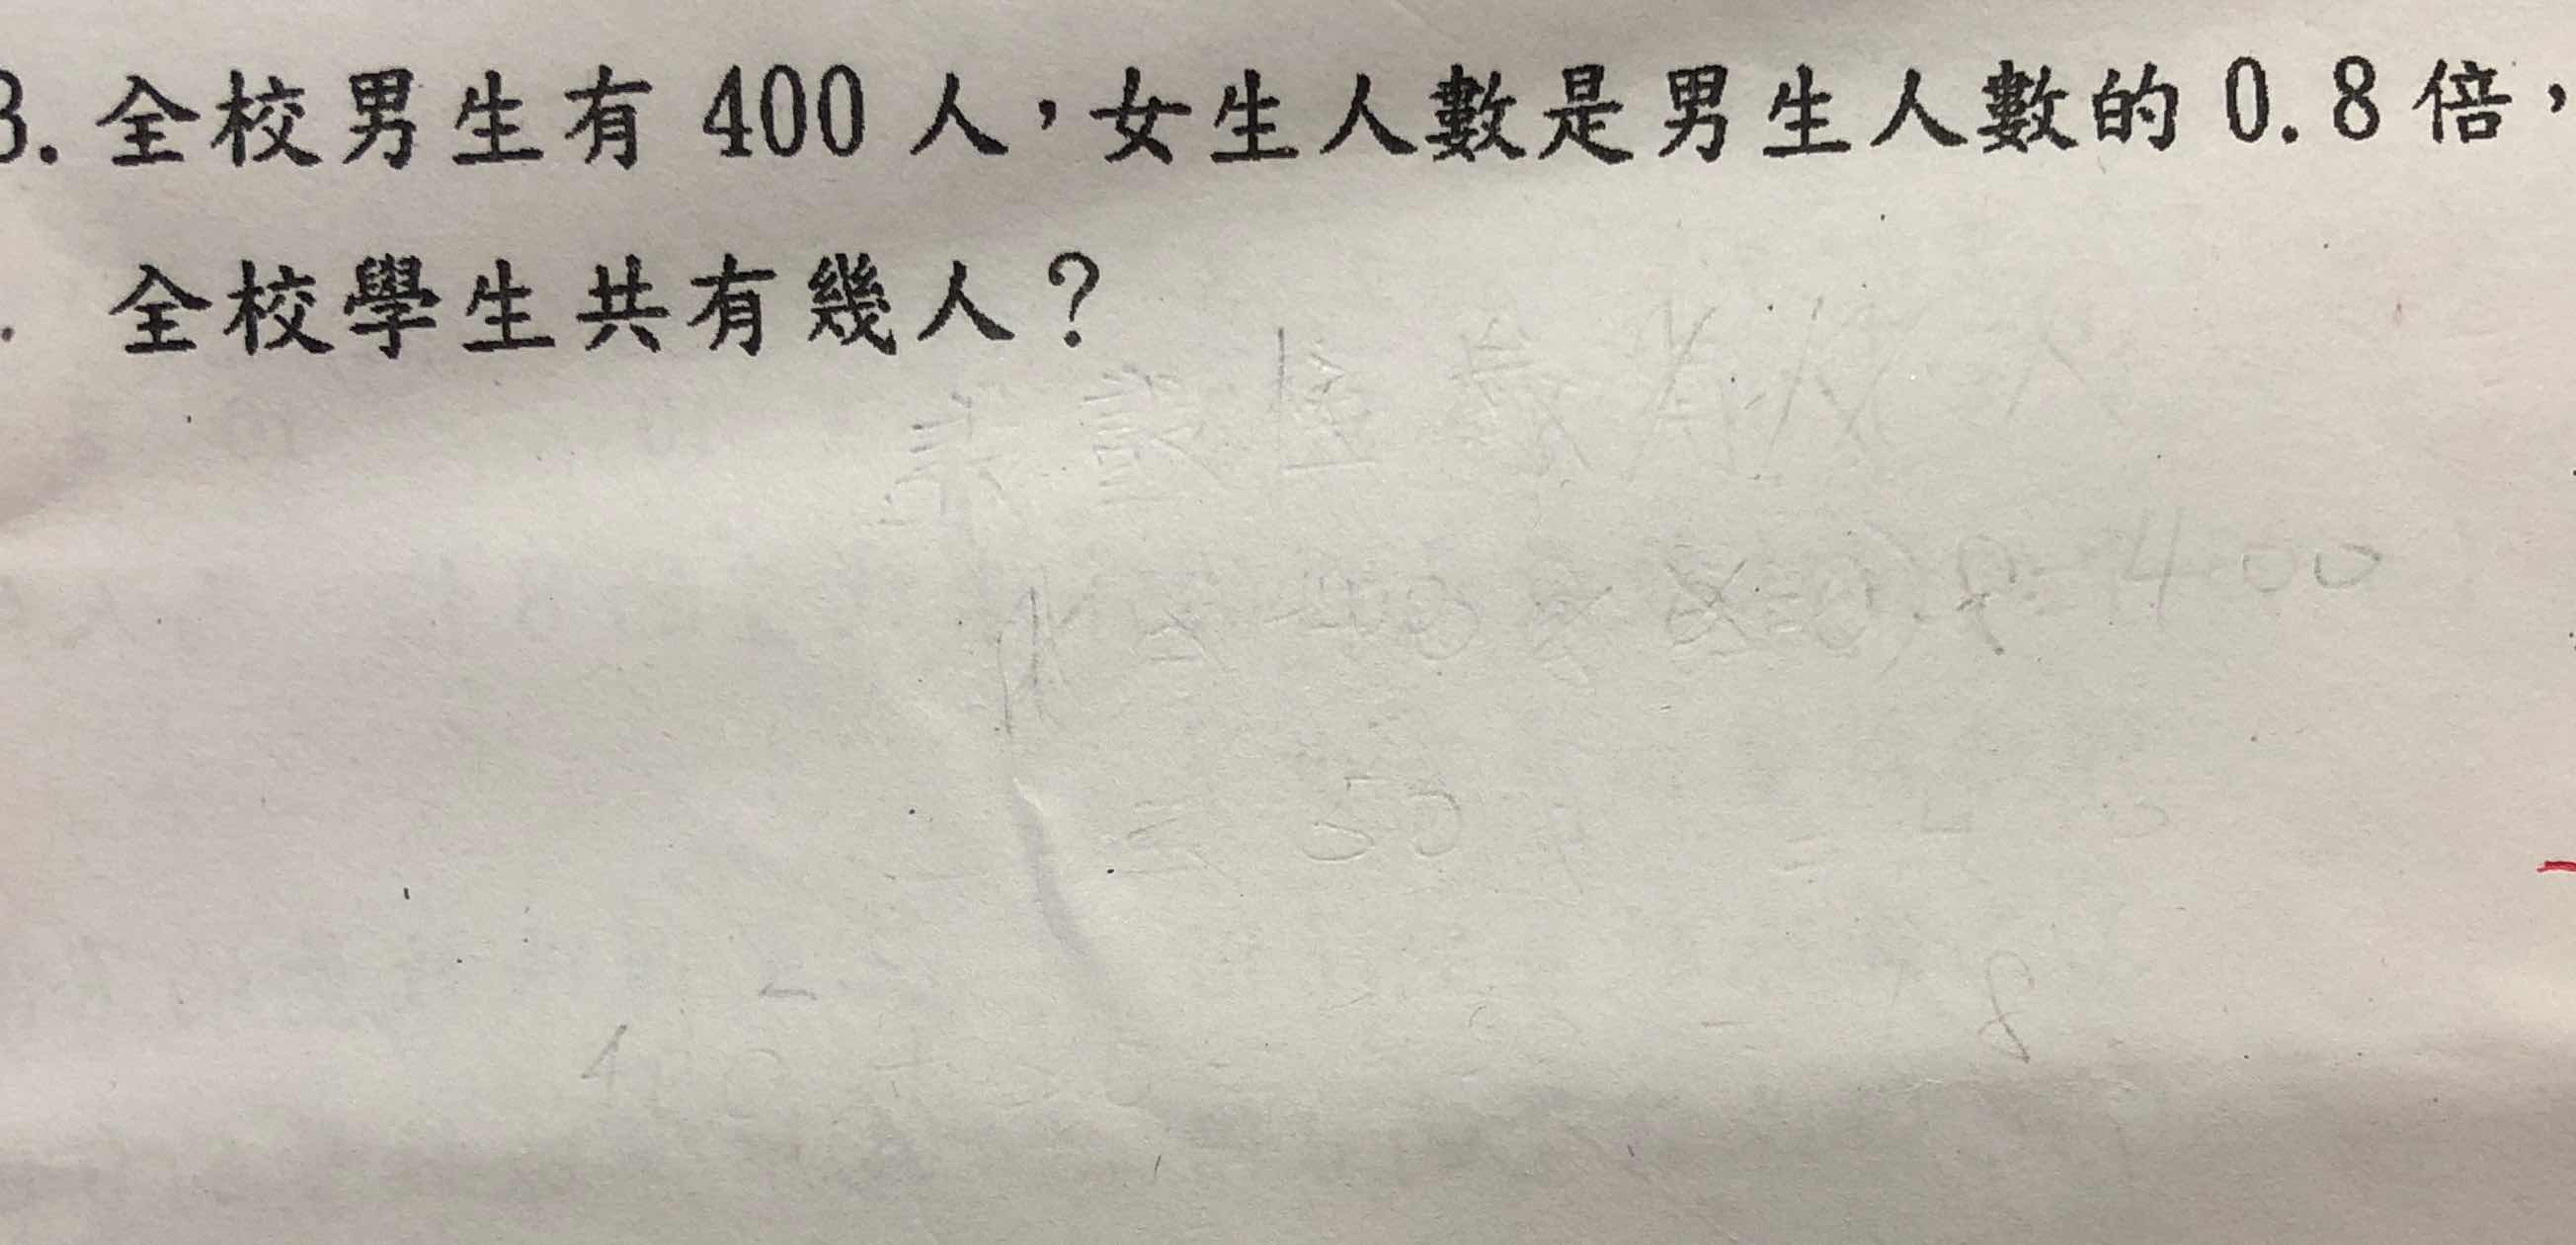 3. 全校男生有 400 人，女生人數是男生人數的 0.8 倍，
全校學生共有幾人？